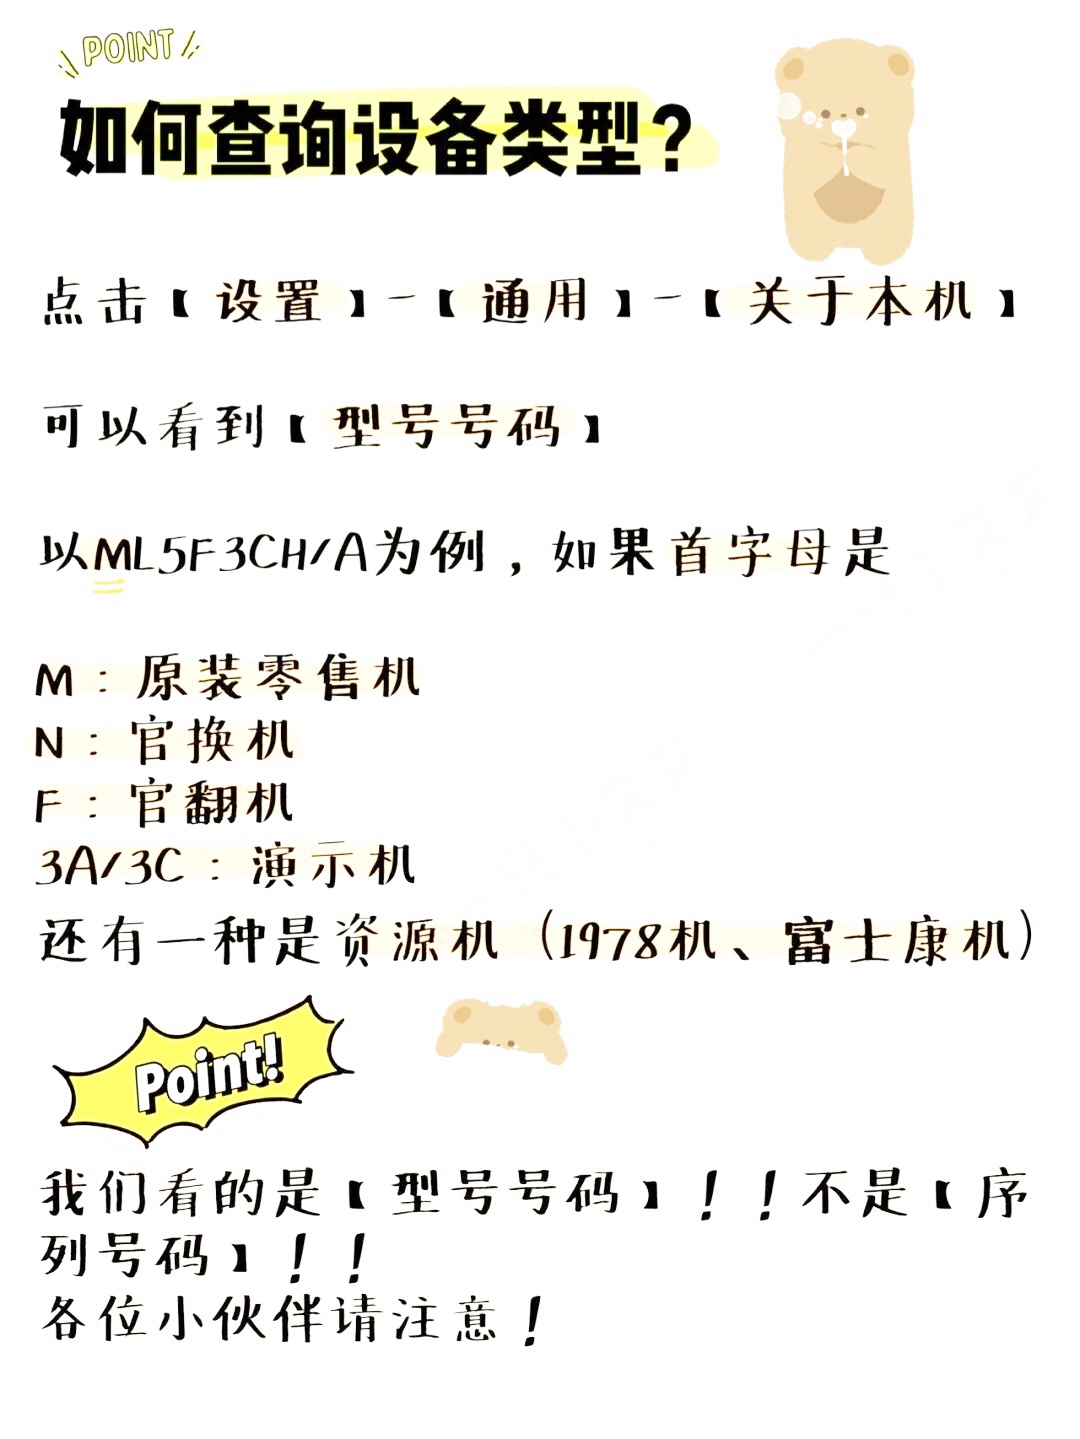 POINT
如何查询设备类型？
点击【设置】-【通用】-【关于本机】
可以看到【型号号码】
以ML5F3CH/A为例，如果首字母是
M：原装零售机
N：官换机
F：官翻机
3A/3C：演示机
还有一种是资源机（1978机、富士康机）
Point!
我们看的是【型号号码】！！不是【序
列号码】！！
各位小伙伴请注意！